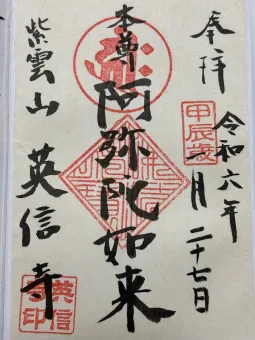 奉拝
令和六年
甲辰歳
一月二十七日
本尊
阿弥陀如来
紫雲山
英信寺
英信寺印